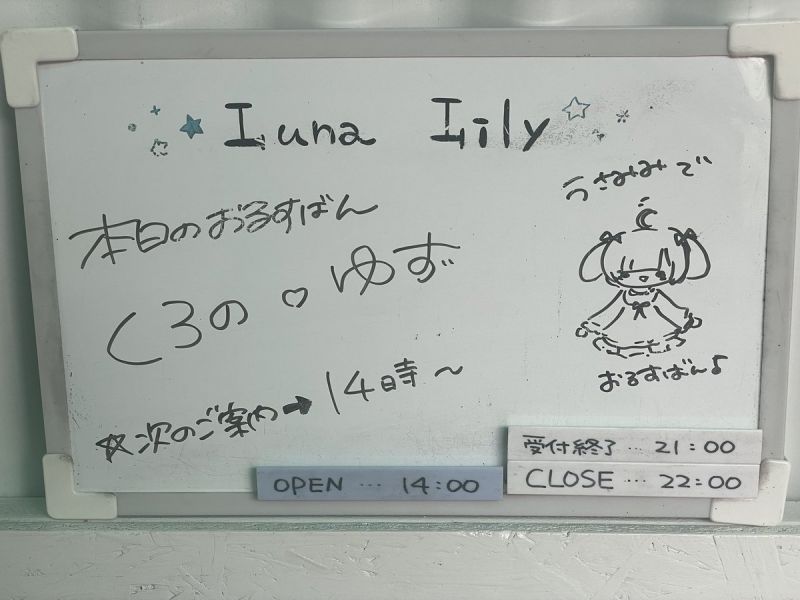 Luna Lily
本日のおるすばん
くろの♡ゆず
☆次のご案内➡14時～
うさみみで
おるすばん♪
OPEN … 14:00
受付終了 … 21:00
CLOSE … 22:00